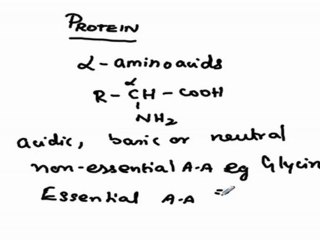 PROTEIN
α-aminoacids
α
R-CH-COOH
NH₂
acidic, basic or neutral
non-essential A-A eg Glycin
Essential A-A =